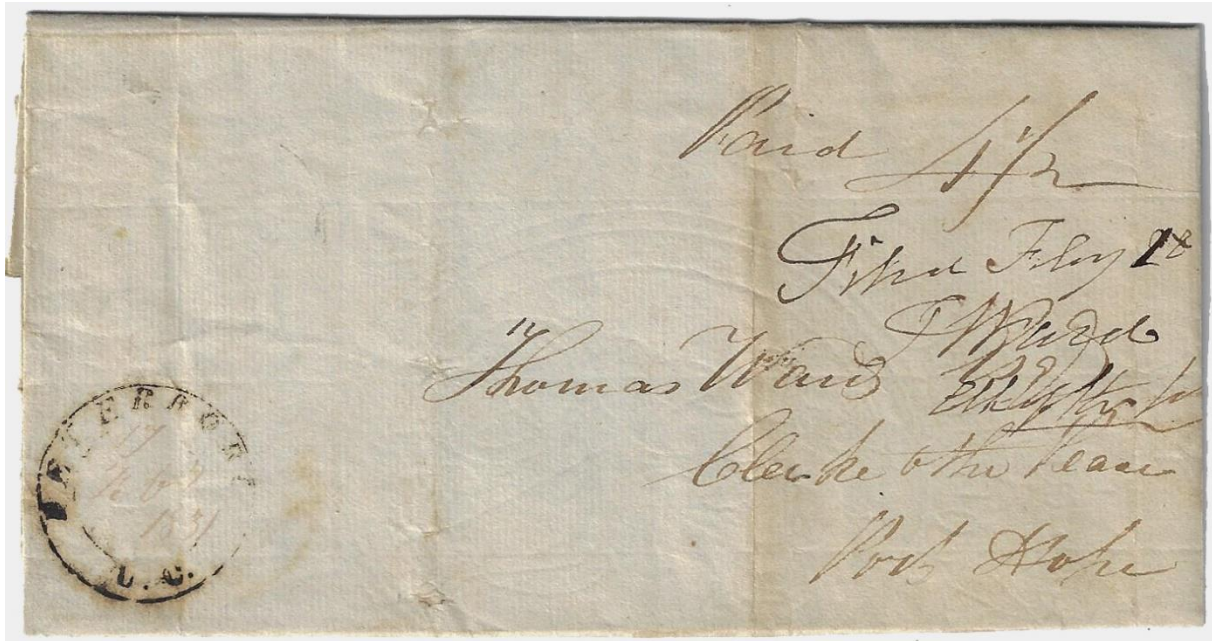 Paid 4½
Filed Feby 18
T Ward
Thomas Ward
Clerke o the Peace
Port Hope
PETERBORO
17
Feb
1831
U.C.